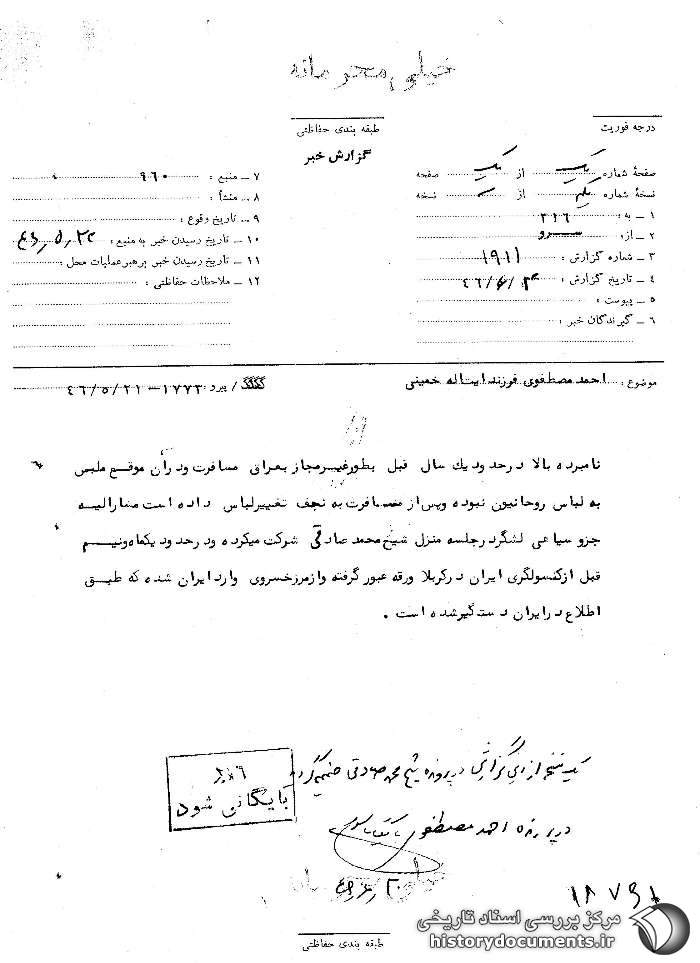 خیلی محرمانه
درجه فوریت
طبقه بندی حفاظتی
گزارش خبر
صفحهٔ شماره یک از یک صفحه
نسخهٔ شماره یک از نسخه
۱ ـ به : ۳۱۶
۲ ـ از :
۳ ـ شماره گزارش : ۱۹۱۱
۴ ـ تاریخ گزارش : ۴۶/۶/
۵ ـ پیوست :
۶ ـ گیرندگان خبر :
۷ ـ منبع : ۹۶۰
۸ ـ منشأ :
۹ ـ تاریخ وقوع :
۱۰ ـ تاریخ رسیدن خبر به منبع :
۱۱ ـ تاریخ رسیدن خبر برهبر عملیات محل :
۱۲ ـ ملاحظات حفاظتی :
موضوع : احمد مصطفوی فرزند ایت اله خمینی / پیرو ۱۷۷۳-۴۶/۵/۲۱
نامبرده بالا در حدود یك سال قبل بطور غیرمجاز بعراق مسافرت و در آن موقع ملبس
به لباس روحانیون نبوده و پس از مسافرت به نجف تغییر لباس داده است مشارالیه
جزو سیاهی لشگر در جلسه منزل شیخ محمد صادقی شرکت میکرده و در حدود یکماه ونیم
قبل از کنسولگری ایران در کربلا ورقه عبور گرفته و از مرز خسروی وارد ایران شده که طبق
اطلاع در ایران دستگیر شده است .
یک نسخه از این گزارش در پرونده شیخ محمد صادقی ضمیمه گردد
در پرونده احمد مصطفوی
بایگانی شود
طبقه بندی حفاظتی
مرکز بررسی اسناد تاریخی
historydocuments.ir